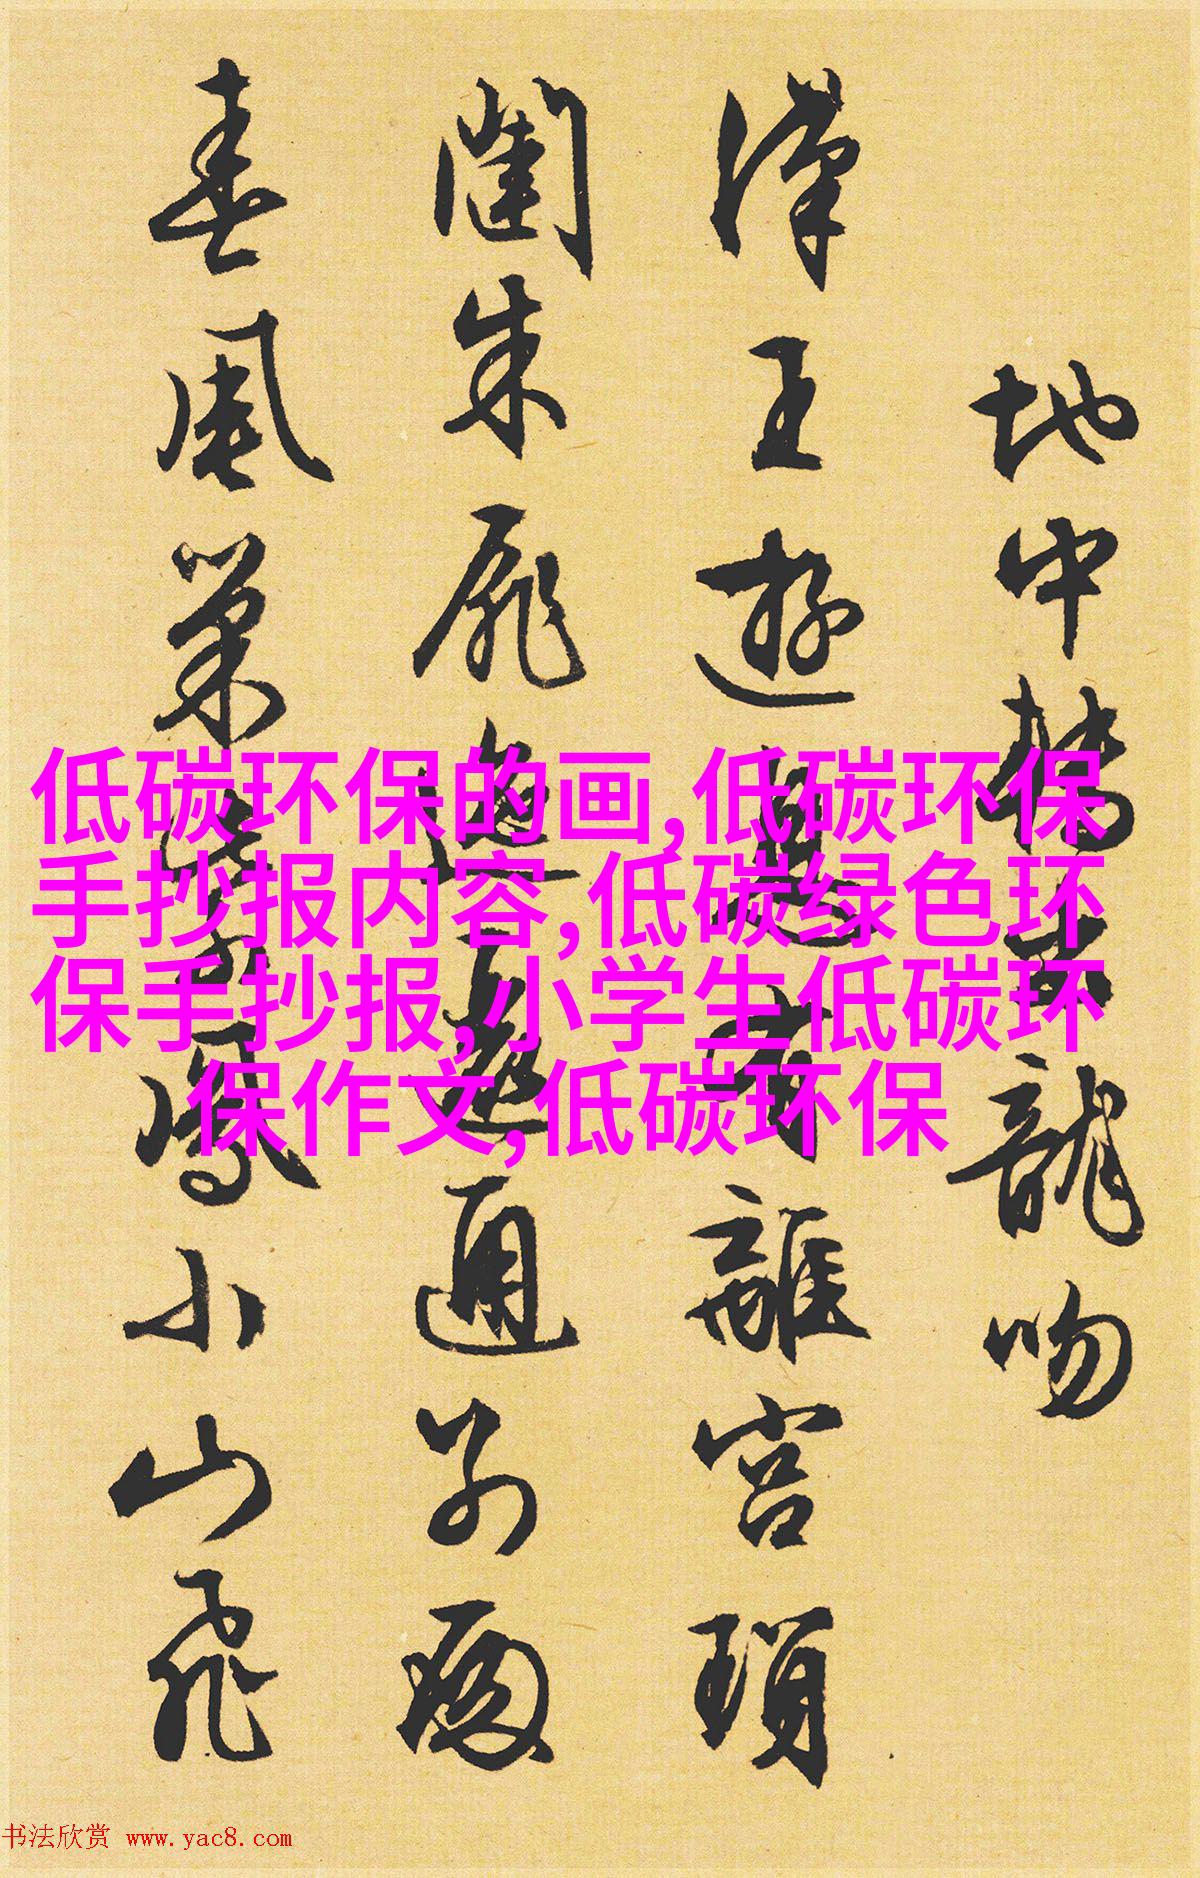 地中龍吻
漢王遊息有離宮瑣
闥朱扉迤邐通別殿
春風巢紫鳳小山飛
低碳环保的画,低碳环保
手抄报内容,低碳绿色环
保手抄报,小学生低碳环
保作文,低碳环保
书法欣赏 www.yac8.com